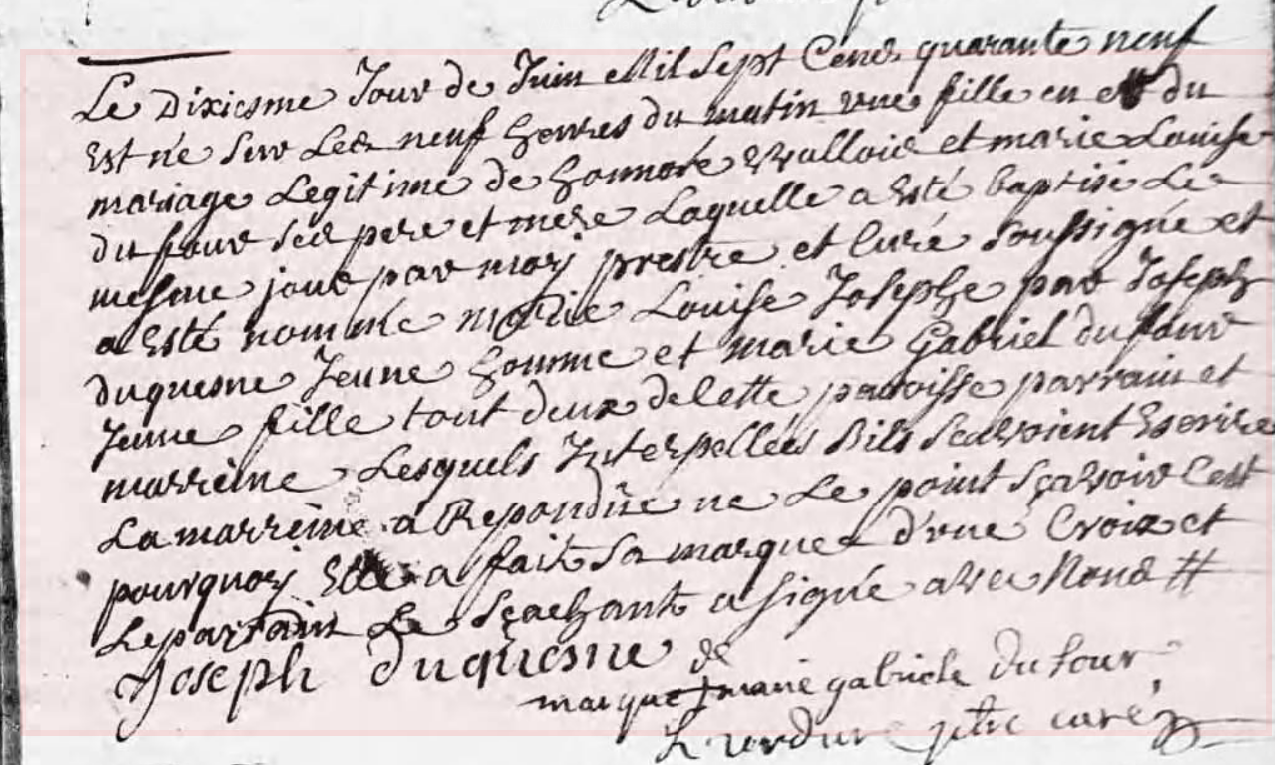 Le Dixiesme Jour de Juin Mil Sept Cens quarante neuf
Est né sur Les neuf heures du matin une fille en et du
mariage Legitime de honnoré Walloie et marie Louise
du four ses pere et mere Laquelle a Esté baptisé Le
mesme jour par moy prestre et Curé soussigné et
a Esté nommé marie Louise Josephe par Joseph
duquesne Jeune homme et marie Gabriel du four
Jeune fille tout deux de Cette paroisse parrain et
marreine Lesquels Interpellées s'ils scavoient Escrire
La marreine a Repondue ne Le point sçavoir C'est
pourquoy Elle a fait Sa marque d'une Croix et
Le parrain Le sçachant a signé avec Nous #
Joseph duquesne
marque de + marie gabriele du four
verdure ptre curé